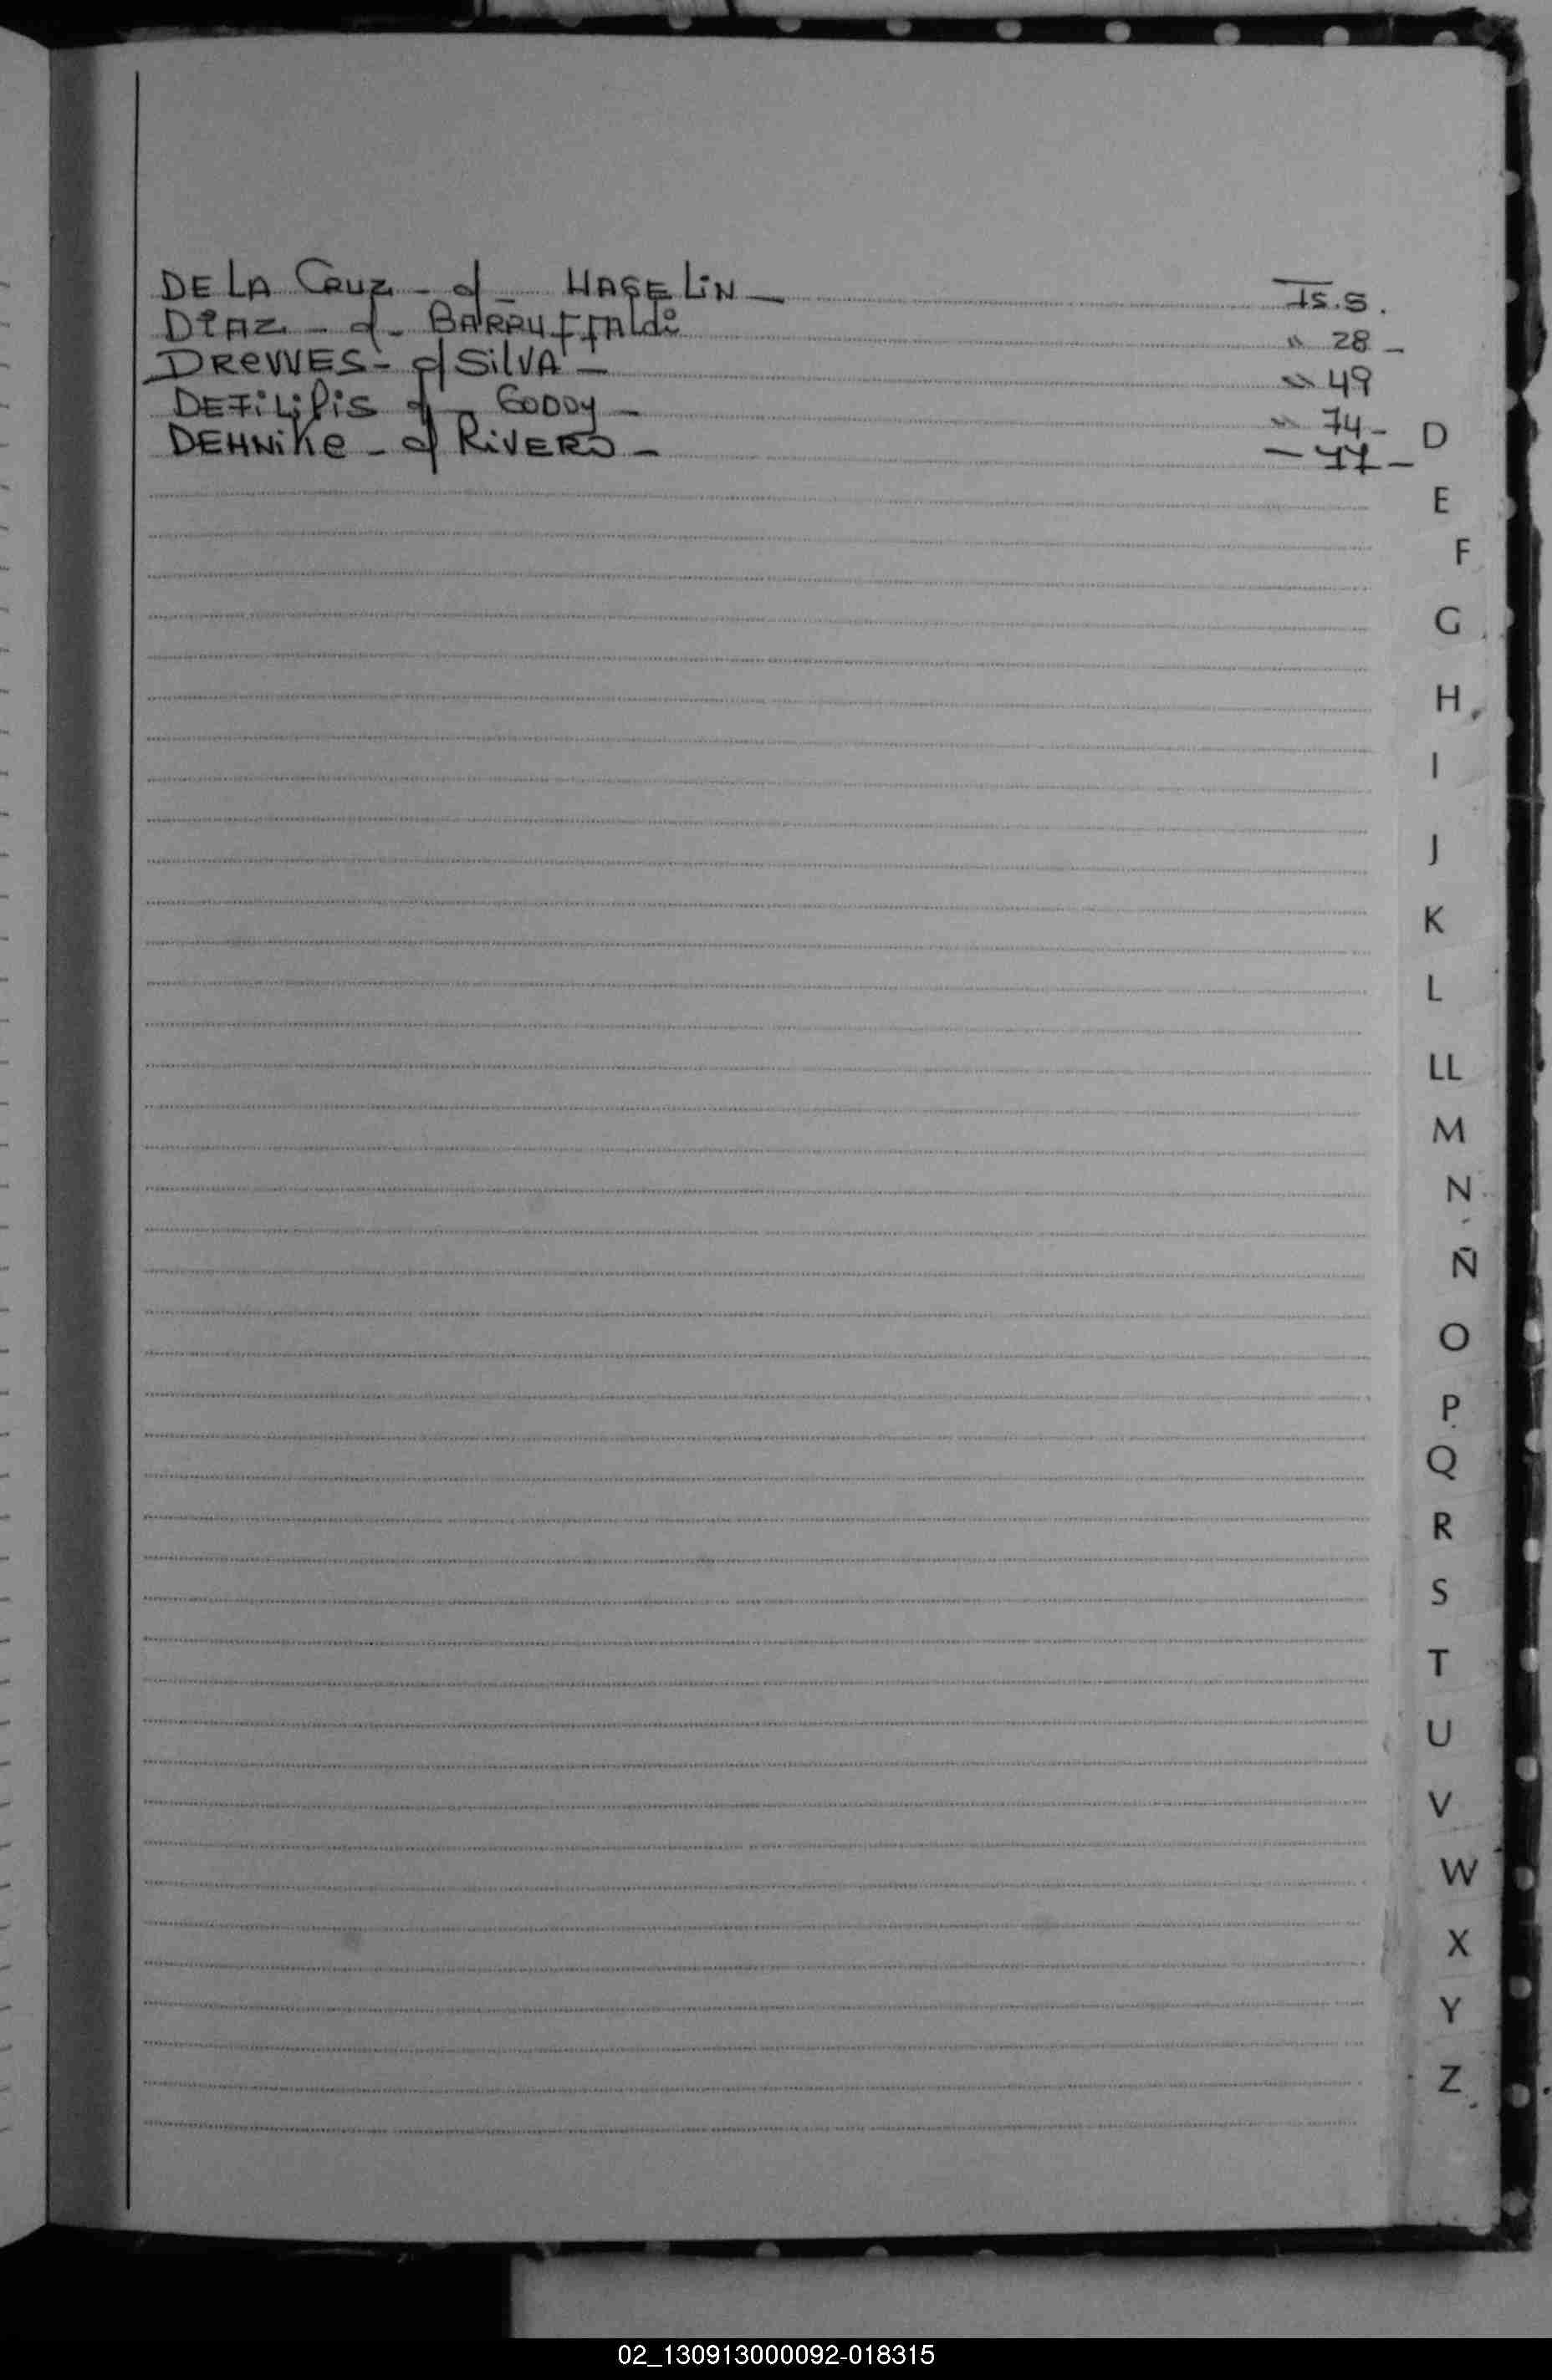 DE LA CRUZ - c/ - HASELIN - Ts. 5.
DIAZ - c/ - BARRUFFALDI " 28 -
DREWES - c/ SILVA - " 49
DEFILIPIS c/ - GODOY - " 74 -
DEHNIKE - c/ RIVERO - — 77 -
D
E
F
G
H
I
J
K
L
LL
M
N
Ñ
O
P
Q
R
S
T
U
V
W
X
Y
Z
02_130913000092-018315